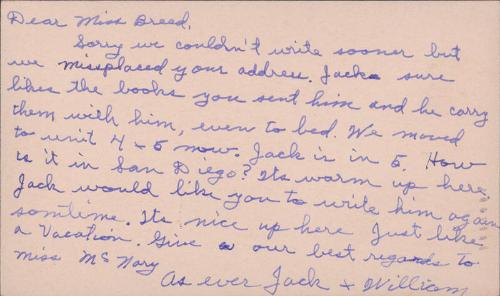 Dear Miss Breed,
Sorry we couldn't write sooner but
we missplaced your address. Jack sure
likes the books you sent him and he carry
them with him, even to bed. We moved
to unit 4 + 5 now. Jack is in 5. How
is it in San Diego? Its warm up here.
Jack would like you to write him again
somtime. Its nice up here Just like
a Vacation. Give our best regards to
miss Mc Nary
As ever Jack + William